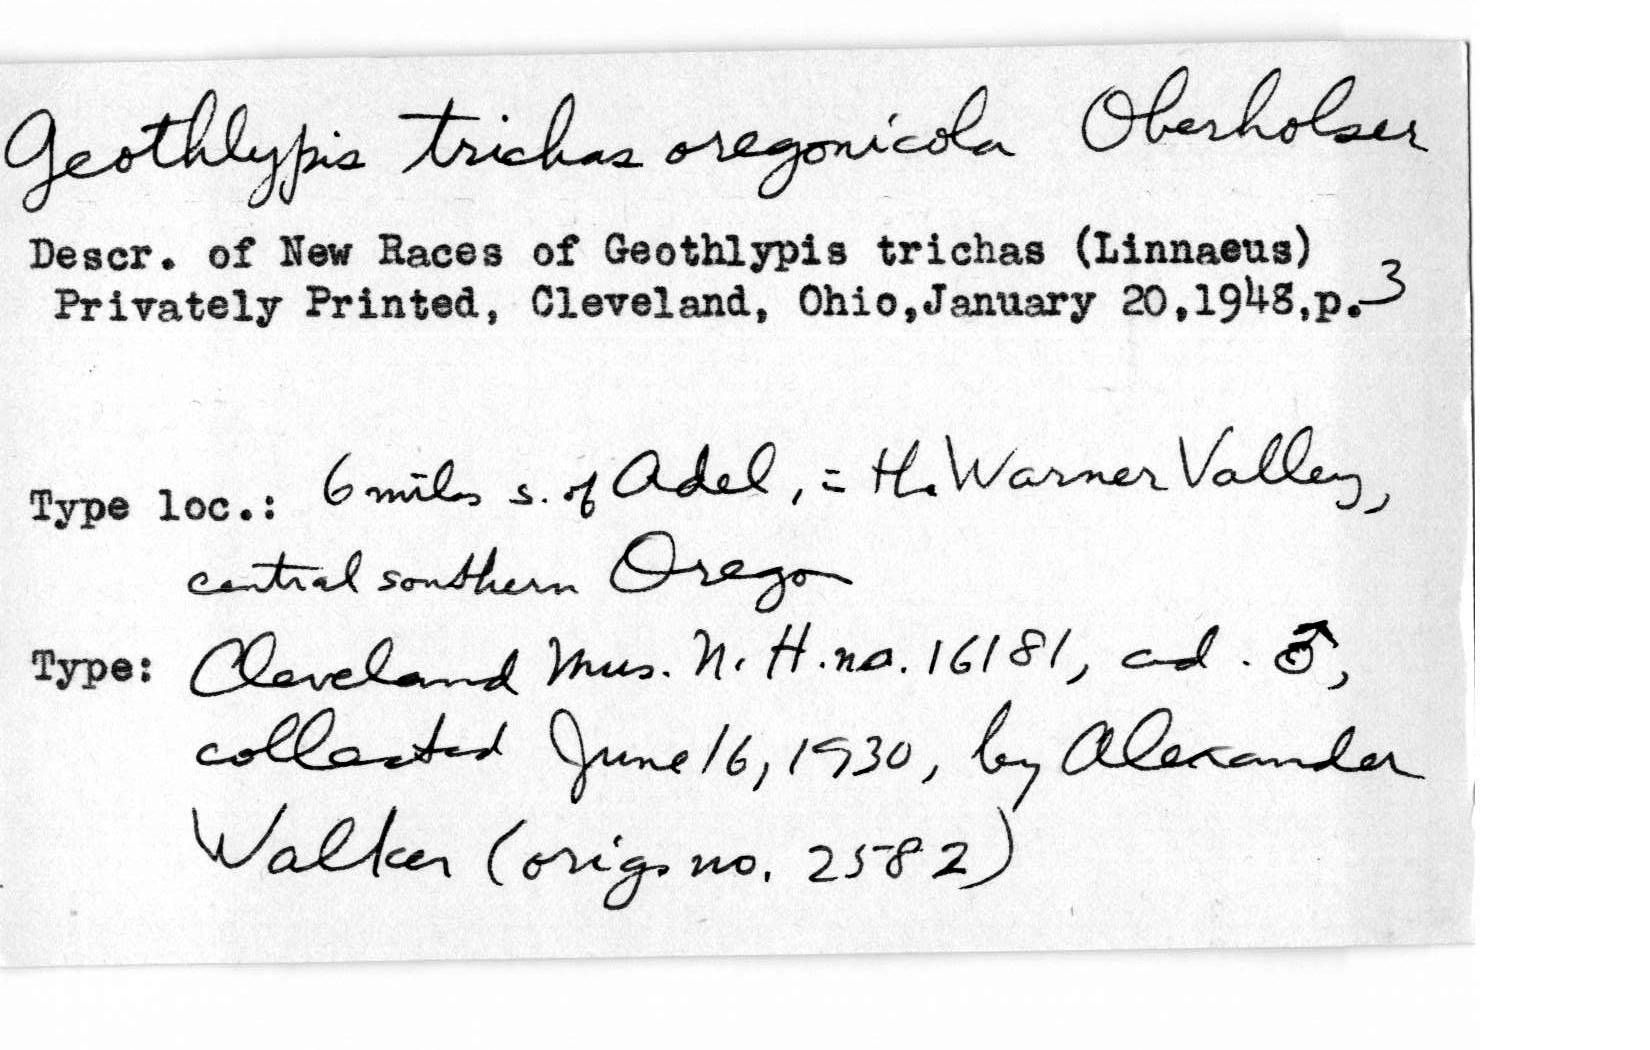 Geothlypis trichas oregonicola Oberholser
Descr. of New Races of Geothlypis trichas (Linnaeus)
Privately Printed, Cleveland, Ohio, January 20, 1948, p. 3
Type loc.: 6 miles s. of Adel, = H. Warner Valley,
central southern Oregon
Type: Cleveland Mus. N. H. no. 16181, ad. ♂,
collected June 16, 1930, by Alexander
Walker (orig. no. 2582)